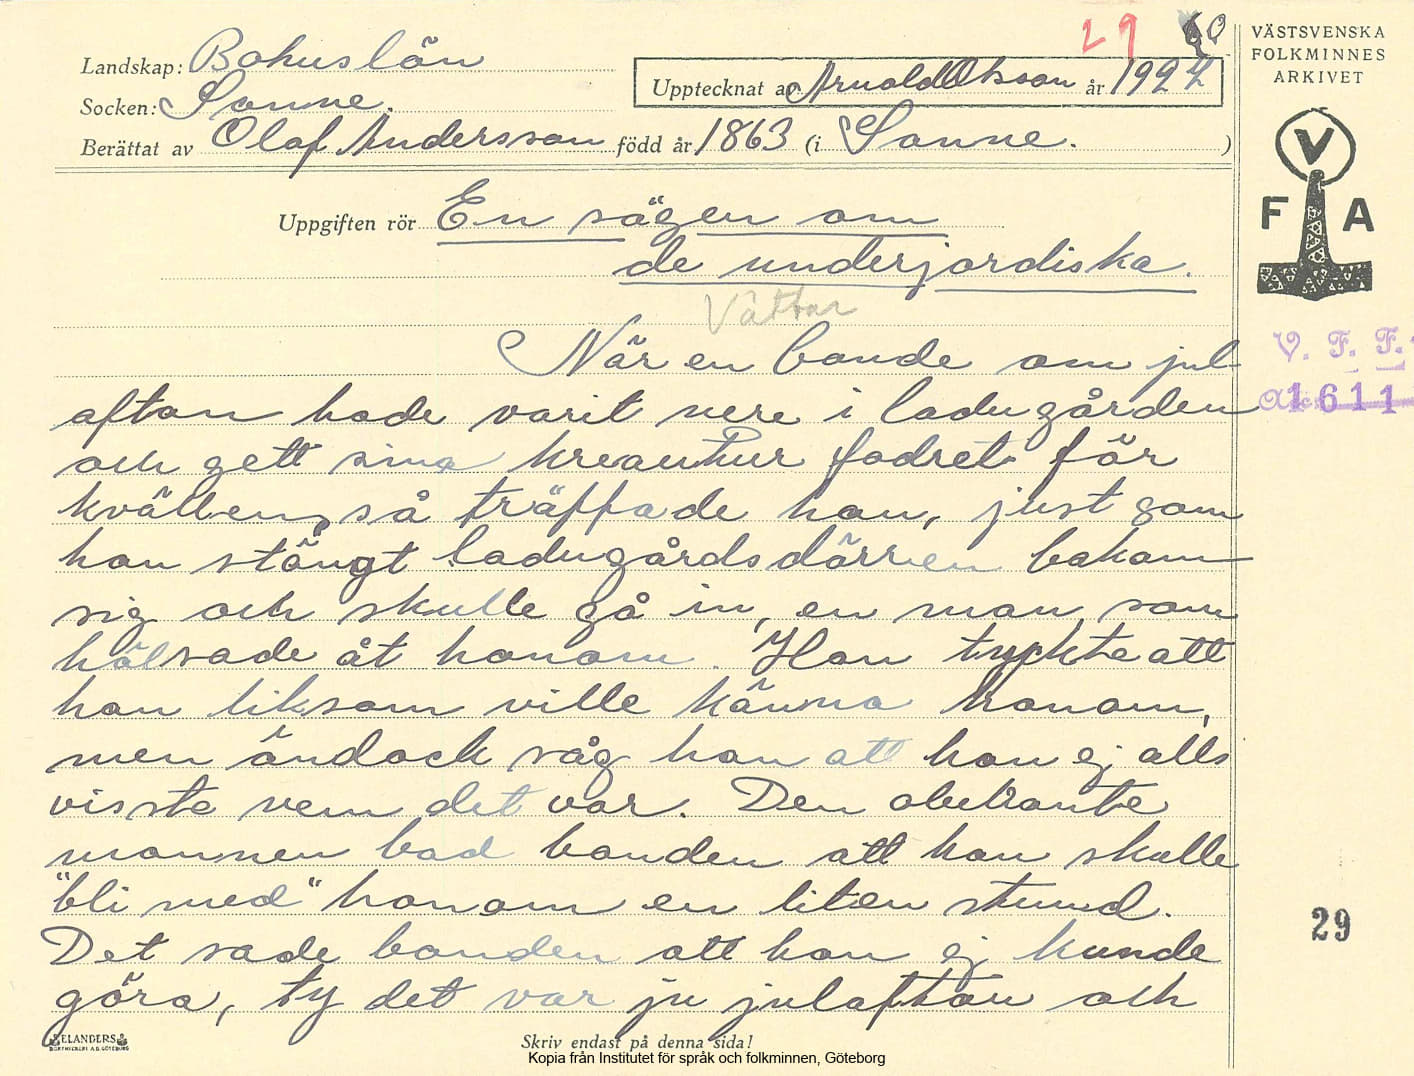 29 60
VÄSTSVENSKA
FOLKMINNES
ARKIVET
Landskap: Bohuslän
Upptecknat av Arnold Olsson år 1927
Socken: Sanne.
Berättat av Olaf Andersson född år 1863 (i Sanne. )
V
F A
Uppgiften rör En sägen om
de underjordiska.
Vättar
När en bonde om jul
afton hade varit nere i ladugården
och gett sina kreautur fodret för
kvällen, så träffade han, just som
han stängt ladugårdsdörren bakom
sig och skulle gå in, en man, som
hälsade åt honom. Han tyckte att
han liksom ville känna honom,
men ändock såg han att han ej alls
visste vem det var. Den obekante
mannen bad bonden att han skulle
"bli med" honom en liten stund.
Det sade bonden att han ej kunde
göra, ty det var ju julafton och
V. F. F.
Acc. 1611
29
ELANDERS
BOKTRYCKERI A.B. GÖTEBORG
Skriv endast på denna sida!
Kopia från Institutet för språk och folkminnen, Göteborg